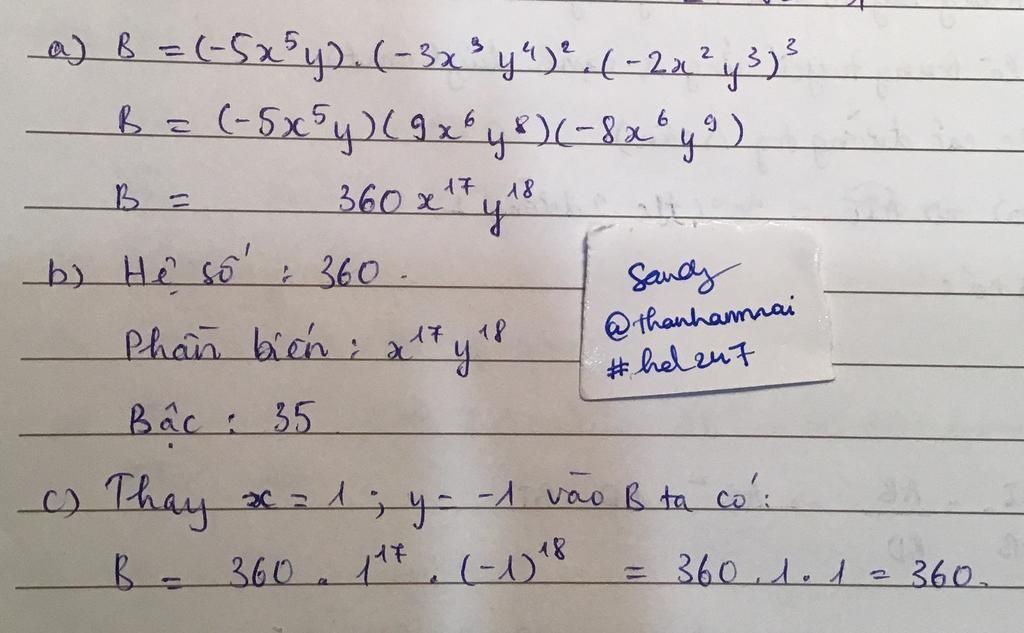 a) B = (-5x⁵y).(-3x³y⁴)².(-2x²y³)³
B = (-5x⁵y)(9x⁶y⁸)(-8x⁶y⁹)
B = 360x¹⁷y¹⁸
b) Hệ số : 360.
Phần biến : x¹⁷y¹⁸
Bậc : 35
c) Thay x = 1 ; y = -1 vào B ta có:
B = 360 . 1¹⁷ . (-1)¹⁸ = 360.1.1 = 360.
Sandy
@thanhamnai
#hd247